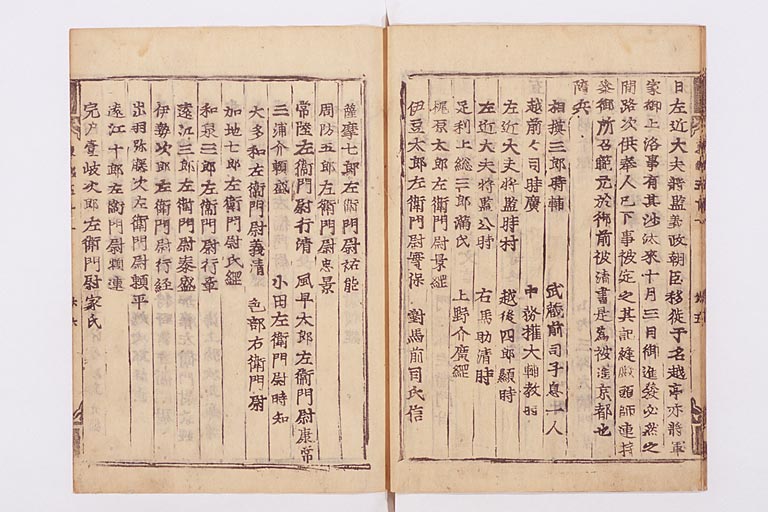 日左近大夫将監義政朝臣移徙于名越亭亦将軍
家御上洛事有其沙汰来十月三日御進發必然之
間路次供奉人已下事被定之其記縫殿頭師連持
参御所召範元於御前被清書是為被進京都也
随兵
相摸三郎時輔 武蔵前司子息一人
越前々司時廣 中務権大輔教時
左近大夫将監時村 越後四郎顕時
左近大夫将監公時 右馬助清時
足利上総三郎満氏 上野介廣綱
梶原太郎左衛門尉景綱
伊豆太郎左衛門尉實保 對馬前司氏信
薩摩七郎左衛門尉祐能
周防五郎左衛門尉忠景
常陸左衛門尉行清 風早太郎左衛門尉康常
三浦介頼盛 小田左衛門尉時知
大多和左衛門尉義清 色部右衛門尉
加地七郎左衛門尉氏綱
和泉三郎左衛門尉行章
遠江三郎左衛門尉泰盛
伊勢次郎左衛門尉行経
出羽弥藤次左衛門尉頼平
遠江十郎左衛門尉頼連
完戸壹岐次郎左衛門尉家氏